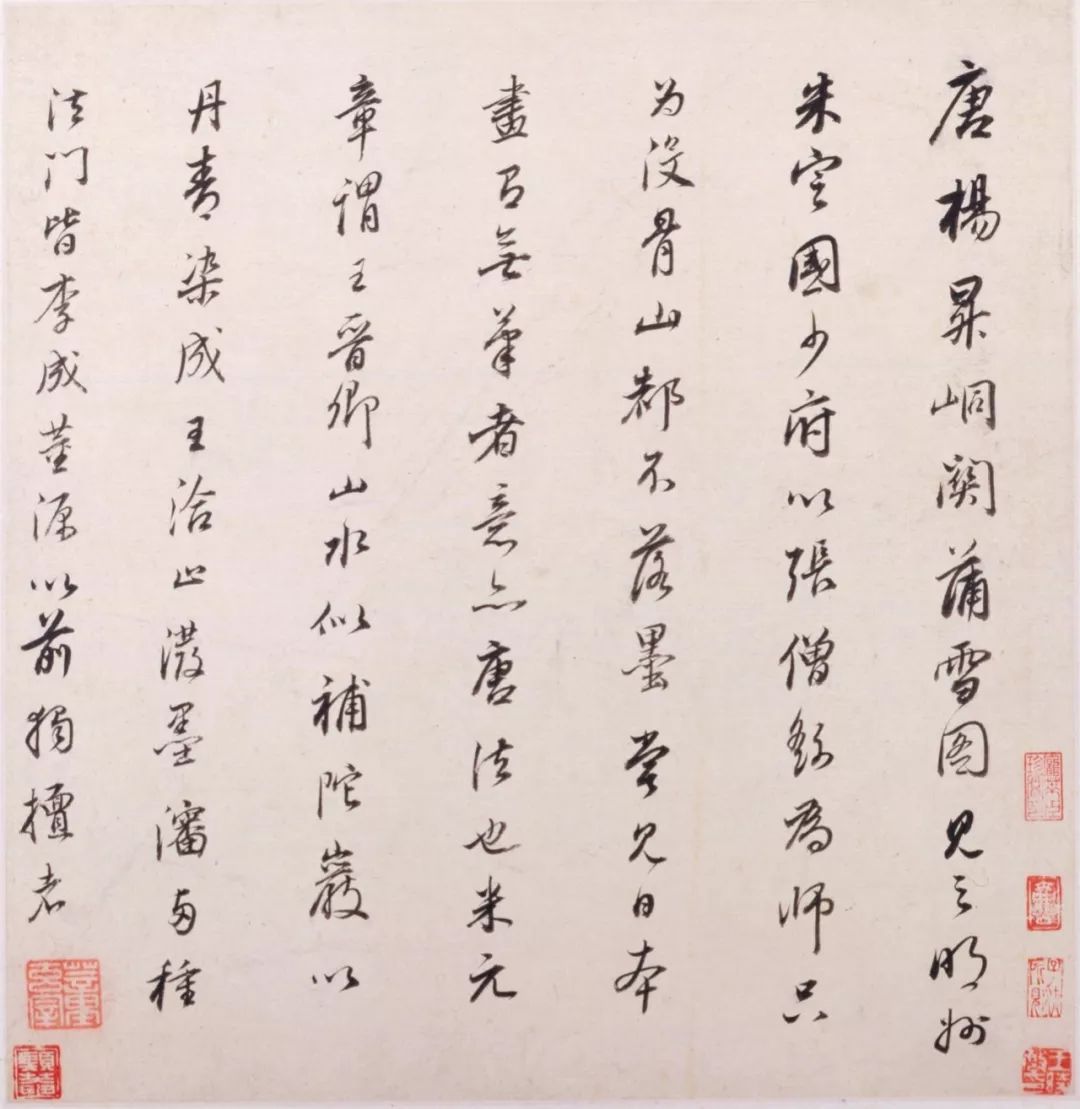 唐楊昇峒關蒲雪图見之明州
朱定國少府以張僧繇為师只
为没骨山都不落墨嘗見日本
畫有無筆者意亦唐法也米元
章謂王晉卿山水似補陀巖以
丹青染成王洽止潑墨瀋與種
法门皆李成董源以前獨擅者